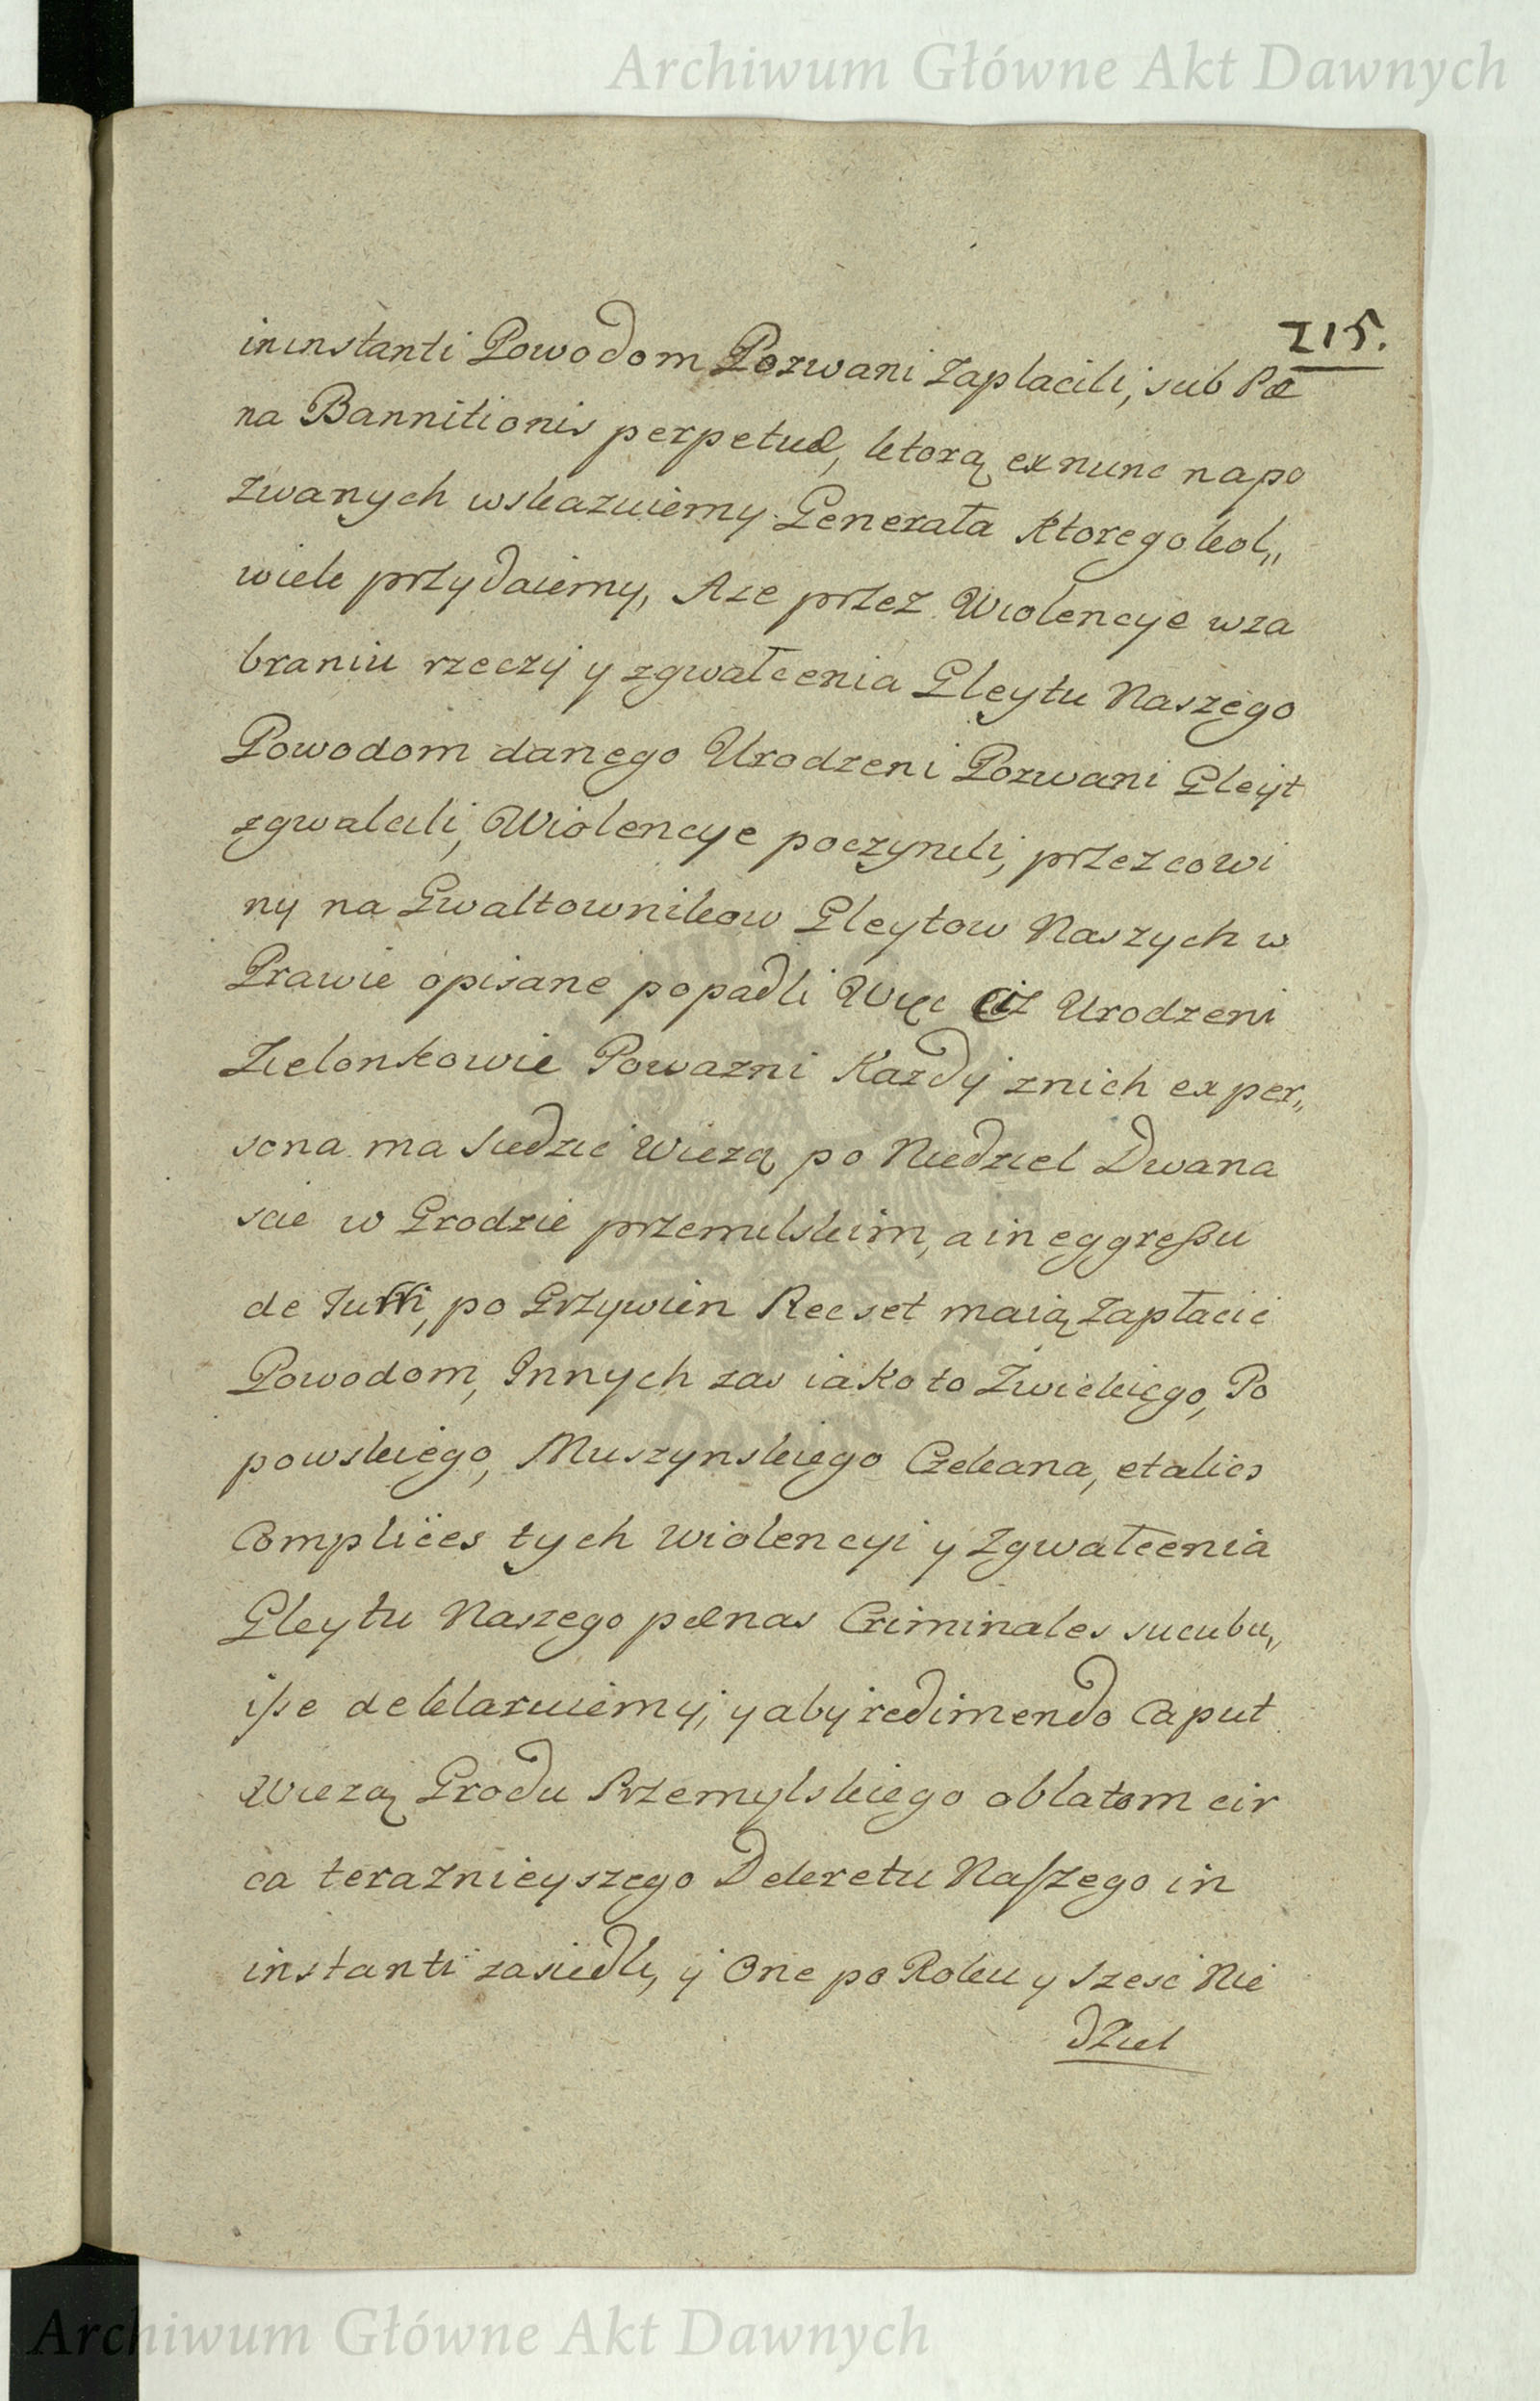 Archiwum Główne Akt Dawnych
215.
in instanti Powodom Pozwani zaplacili, sub Pœ
na Bannitionis perpetuæ, ktorą ex nunc na po
zwanych wskazuiemy Generała ktoregokol„
wiek przydaiemy, A ze przez Wiolencye w za
braniu rzeczy y zgwałcenia Gleytu Naszego
Powodom danego Urodzeni Pozwani Gleyt
zgwalcili, Wiolencye poczynili, przez co wi
ny na Gwaltownikow Gleytow Naszych w
Prawie opisane popadli Więc Ciż Urodzeni
Zielonkowie Powazni Kazdy z nich ex per„
sona ma Siedzić Wiezą po Niedziel Dwana
scie w Grodzie przemilskim, a in eggreßu
de Turri, po Grzywien Recset maią zapłacić
Powodom, Innych zas iako to Zwickiego, Po
powskiego, Muszynskiego Czekana, et alios
Complices tych wiolencyi y zgwałcenia
Gleytu Naszego pœnas Criminales sucubu„
iße deklaruiemy, y aby redimendo Caput
Wiezą Grodu Przemylskiego oblatom cir
ca teraznieyszego Dekretu Naszego in
instanti zasiedli, y One po Roku y szesc Nie
dziel
Archiwum Główne Akt Dawnych